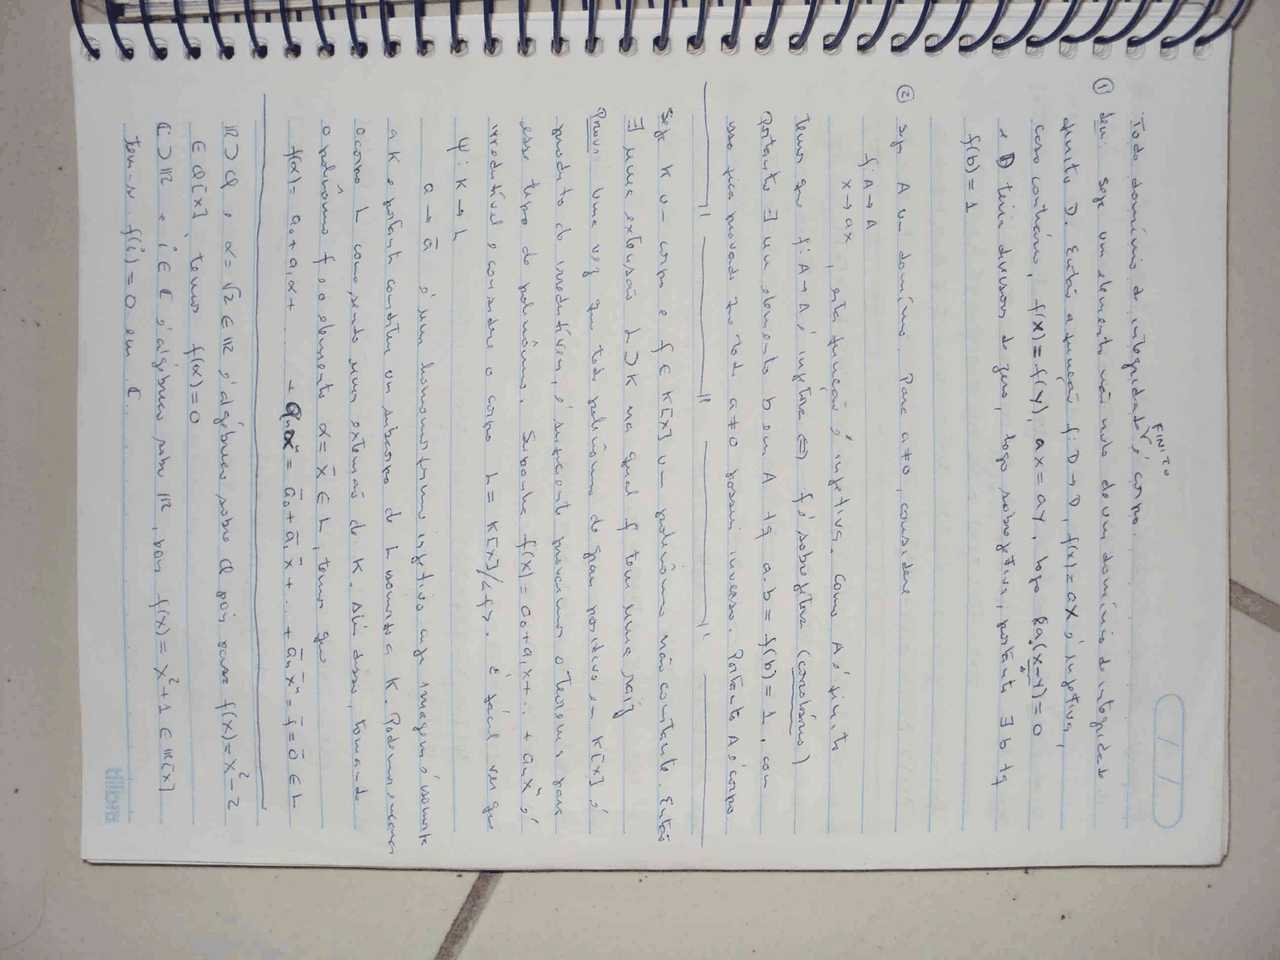 / /
Todo domínio de integridade FINITO é corpo.
① dem: seja um elemento não nulo de um domínio de integridade
finito D. Então a função f: D → D, f(x) = ax é injetiva,
caso contrário, f(x) = f(y), ax = ay, logo a(x-y) = 0
e D teria divisores de zero, logo sobrejetiva, portanto ∃ b tq
f(b) = 1
② seja A um domínio. Para a ≠ 0, considere
f: A → A
x → ax , esta função é injetiva. Como A é finito
temos que f: A → A é injetiva ⇔ f é sobrejetiva (corolário)
Portanto ∃ um elemento b em A tq a.b = f(b) = 1, com
isso fica provado que todo a ≠ 0 possui inverso. Portanto A é corpo
Seja K um corpo e f ∈ K[x] um polinômio não constante. Então
∃ uma extensão L ⊃ K na qual f tem uma raiz
Prova: Uma vez que todo polinômio de grau positivo em K[x] é
produto de irredutíveis, é suficiente provarmos o teorema para
esse tipo de polinômio. Suponha f(x) = a₀ + a₁x + ... + aₙxⁿ é
irredutível e considere o corpo L = K[x]/<f>. É fácil ver que
φ: K → L
a → ā é um homomorfismo injetivo cuja imagem é isomorfa
a K e portanto constitui um subcorpo de L isomorfo a K. Podemos encarar
o corpo L como sendo uma extensão de K. Além disso, tomando
o polinômio f e o elemento α = x̄ ∈ L, temos que
f(α) = a₀ + a₁α + ... + aₙαⁿ = ā₀ + ā₁x̄ + ... + āₙx̄ⁿ = f̄ = 0̄ ∈ L
ℝ ⊃ ℚ, α = √2 ∈ ℝ é algébrico sobre ℚ pois para f(x) = x² - 2
∈ ℚ[x] temos f(α) = 0
ℂ ⊃ ℝ e i ∈ ℂ é algébrico sobre ℝ, pois f(x) = x² + 1 ∈ ℝ[x]
tem-se f(i) = 0 em ℂ.
tilibra